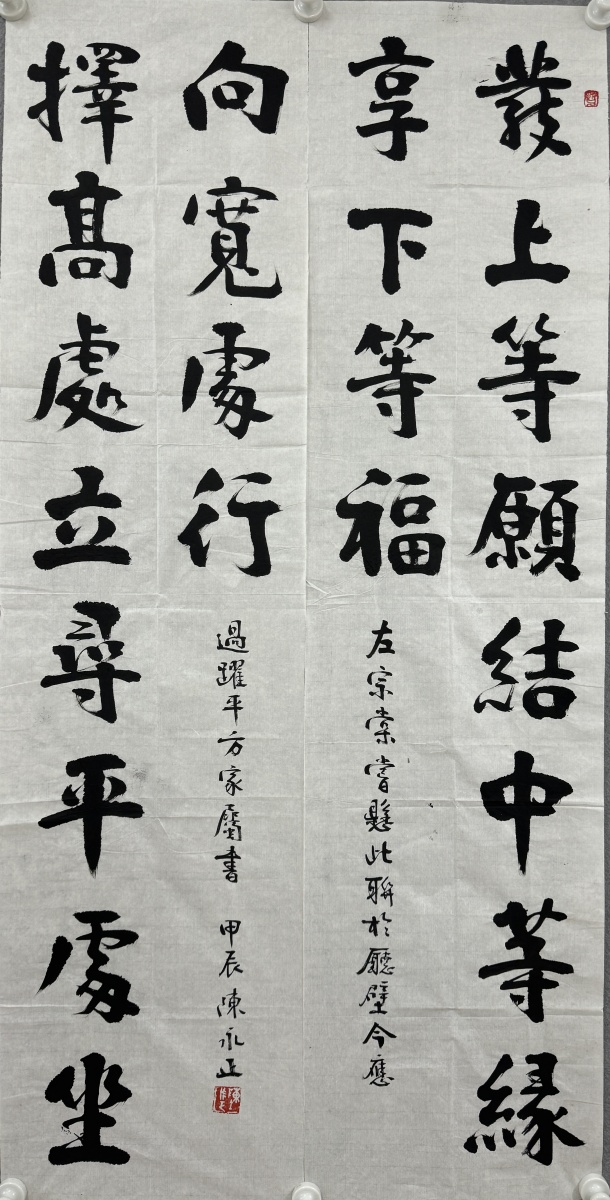 發上等願結中等緣
享下等福
左宗棠嘗懸此聯於廳壁今應
擇高處立尋平處坐
向寬處行
過躍平方家屬書 甲辰陳永正